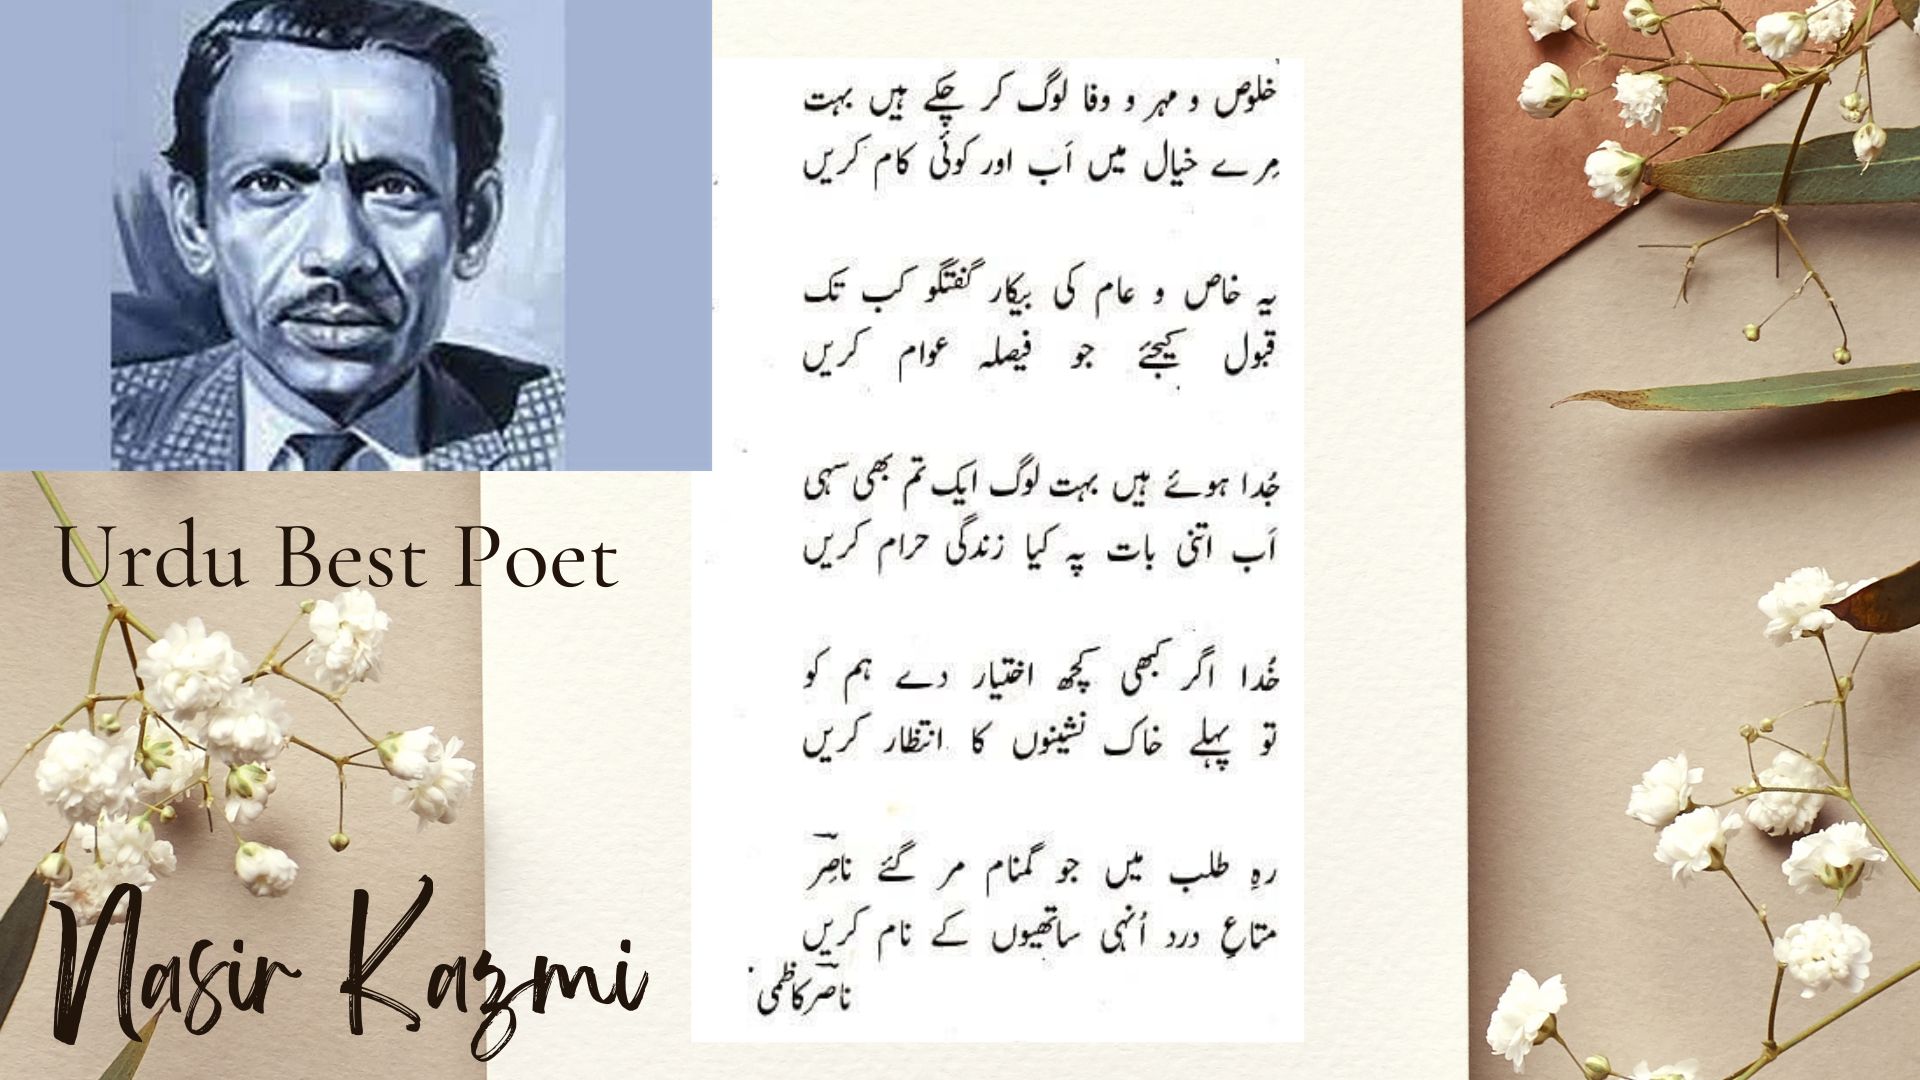 خلوص و مہر و وفا لوگ کر چکے ہیں بہت
مِرے خیال میں اَب اور کوئی کام کریں
یہ خاص و عام کی بیکار گفتگو کب تک
قبول کیجئے جو فیصلہ عوام کریں
جُدا ہوئے ہیں بہت لوگ ایک تم بھی سہی
اَب اتنی بات پہ کیا زندگی حرام کریں
خُدا اگر کبھی کچھ اختیار دے ہم کو
تو پہلے خاک نشینوں کا انتظار کریں
رہِ طلب میں جو گمنام مر گئے ناصِر
متاعِ درد اُنہی ساتھیوں کے نام کریں
ناصر کاظمی
Urdu Best Poet
Nasir Kazmi